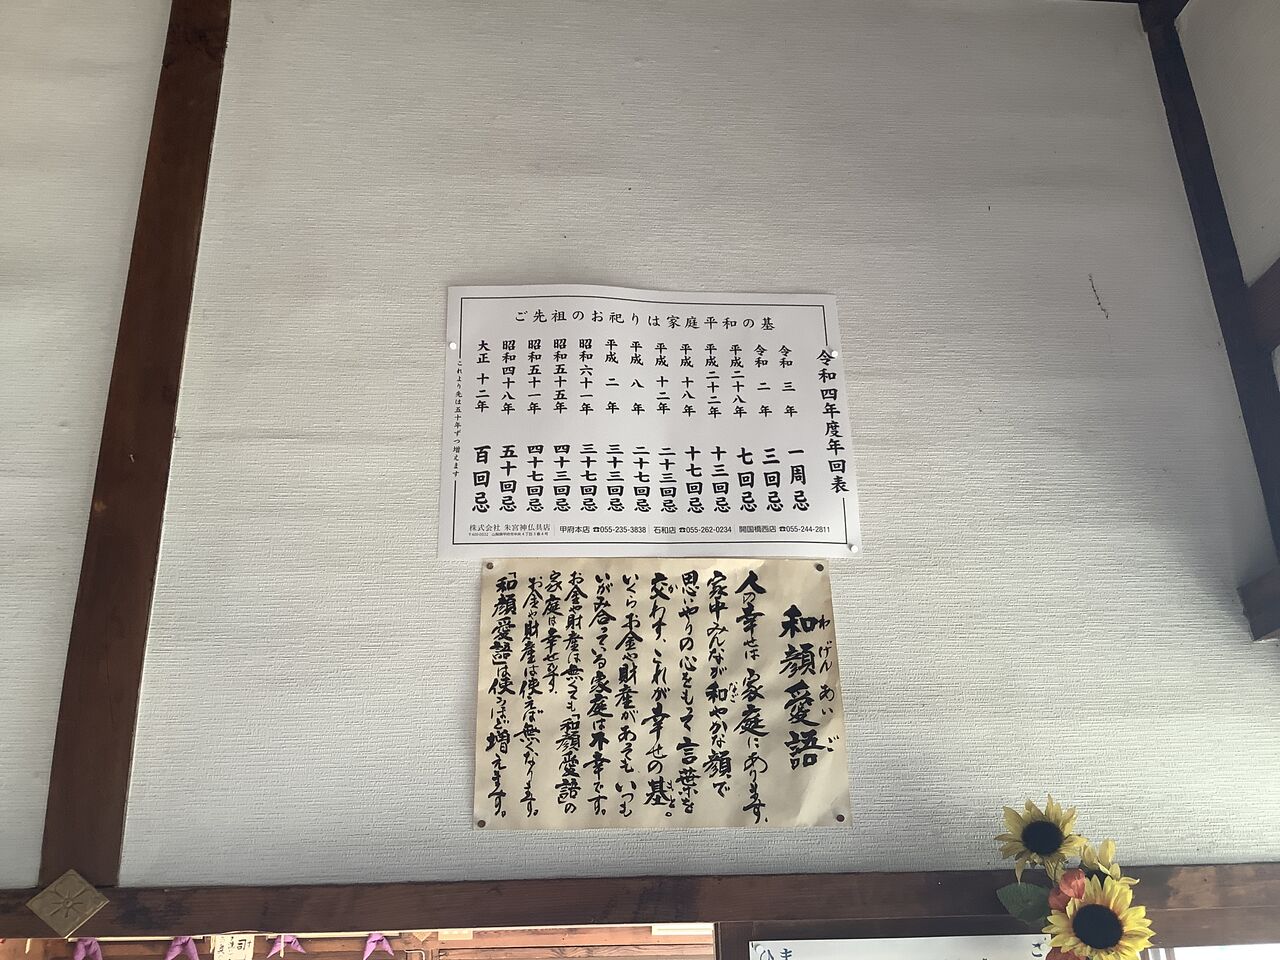 ご先祖のお祀りは家庭平和の基
令和四年度年回表
令和三年 一周忌
令和二年 三回忌
平成二十八年 七回忌
平成二十二年 十三回忌
平成十八年 十七回忌
平成十二年 二十三回忌
平成八年 二十七回忌
平成二年 三十三回忌
昭和六十一年 三十七回忌
昭和五十五年 四十三回忌
昭和五十一年 四十七回忌
昭和四十八年 五十回忌
大正十二年 百回忌
これより先は五十年ずつ増えます
株式会社 朱宮神仏具店 甲府本店 ☎055-235-3838 石和店 ☎055-262-0234 開国橋西店 ☎055-244-2811
わげんあいご
和顔愛語
人の幸せは家庭にあります、
家中みんなが和やかな顔で
なご
思いやりの心をもって言葉を
交わす、これが幸せの基。
か
もと
いくらお金や財産があってもいつも
いがみ合っている家庭は不幸です。
お金や財産は無くても「和顔愛語」の
家庭は幸せです、
お金や財産は使えば無くなります。
「和顔愛語」は使うほど増えます。